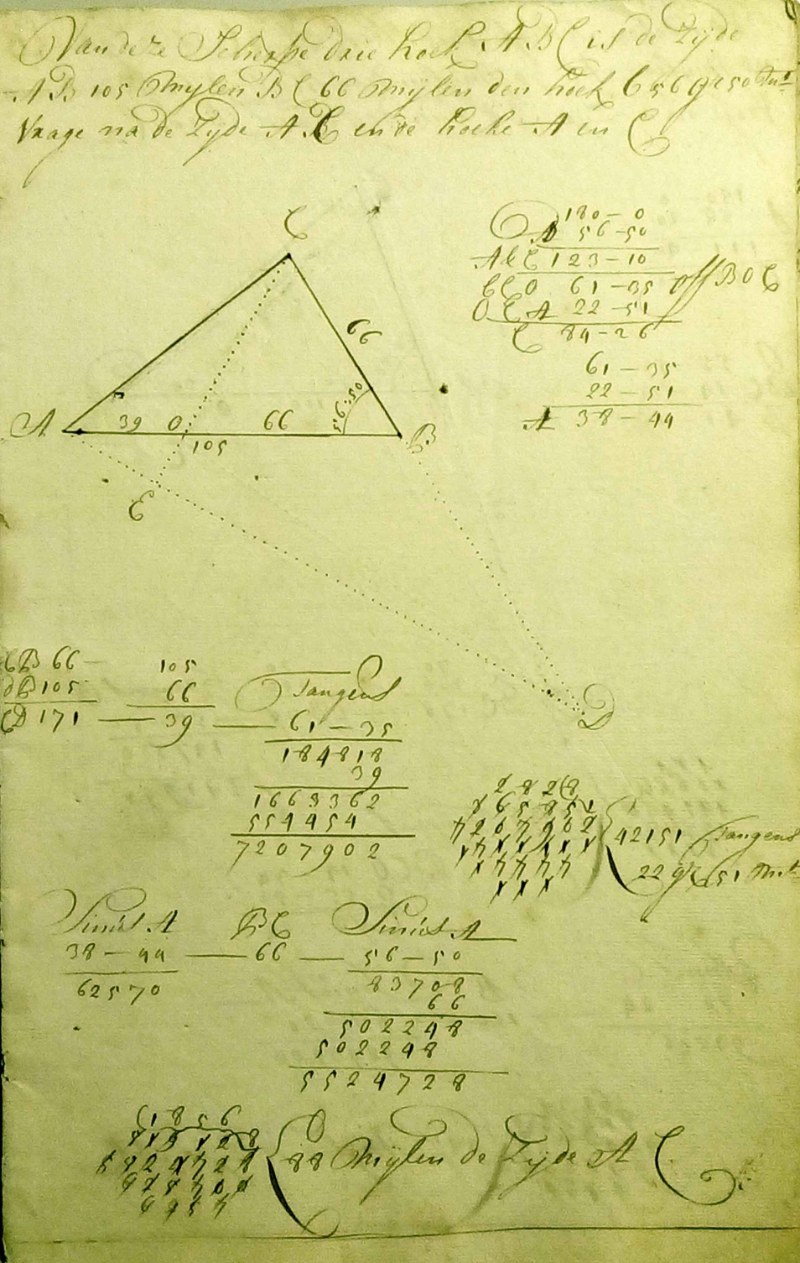 Van deze Scherpe drie hoek ABC is de Zyde
AB 105 Mylen BC 66 Mylen den hoek B 56 gr 50 mt
Vraage na de Zyde AC en de hoeke A en C
C
66
A 39 O 66 56:50 B
105
E
D
180 - 0
56 - 50
123 - 10
BCO 61 - 35 off BOC
OCA 22 - 51
C 84 - 26
61 - 35
22 - 51
A 38 - 44
CB 66
AB 105
171 — 39 — 61 - 35
105
66
Tangens
184818
39
1663362
554454
7207902
42151 Tangens
22 gr 51 mt
Sinus A BC Sinus
38 - 44 — 66 — 56 - 50
62570
83708
66
502248
502248
5524728
1856
88 Mylen de Zyde AC